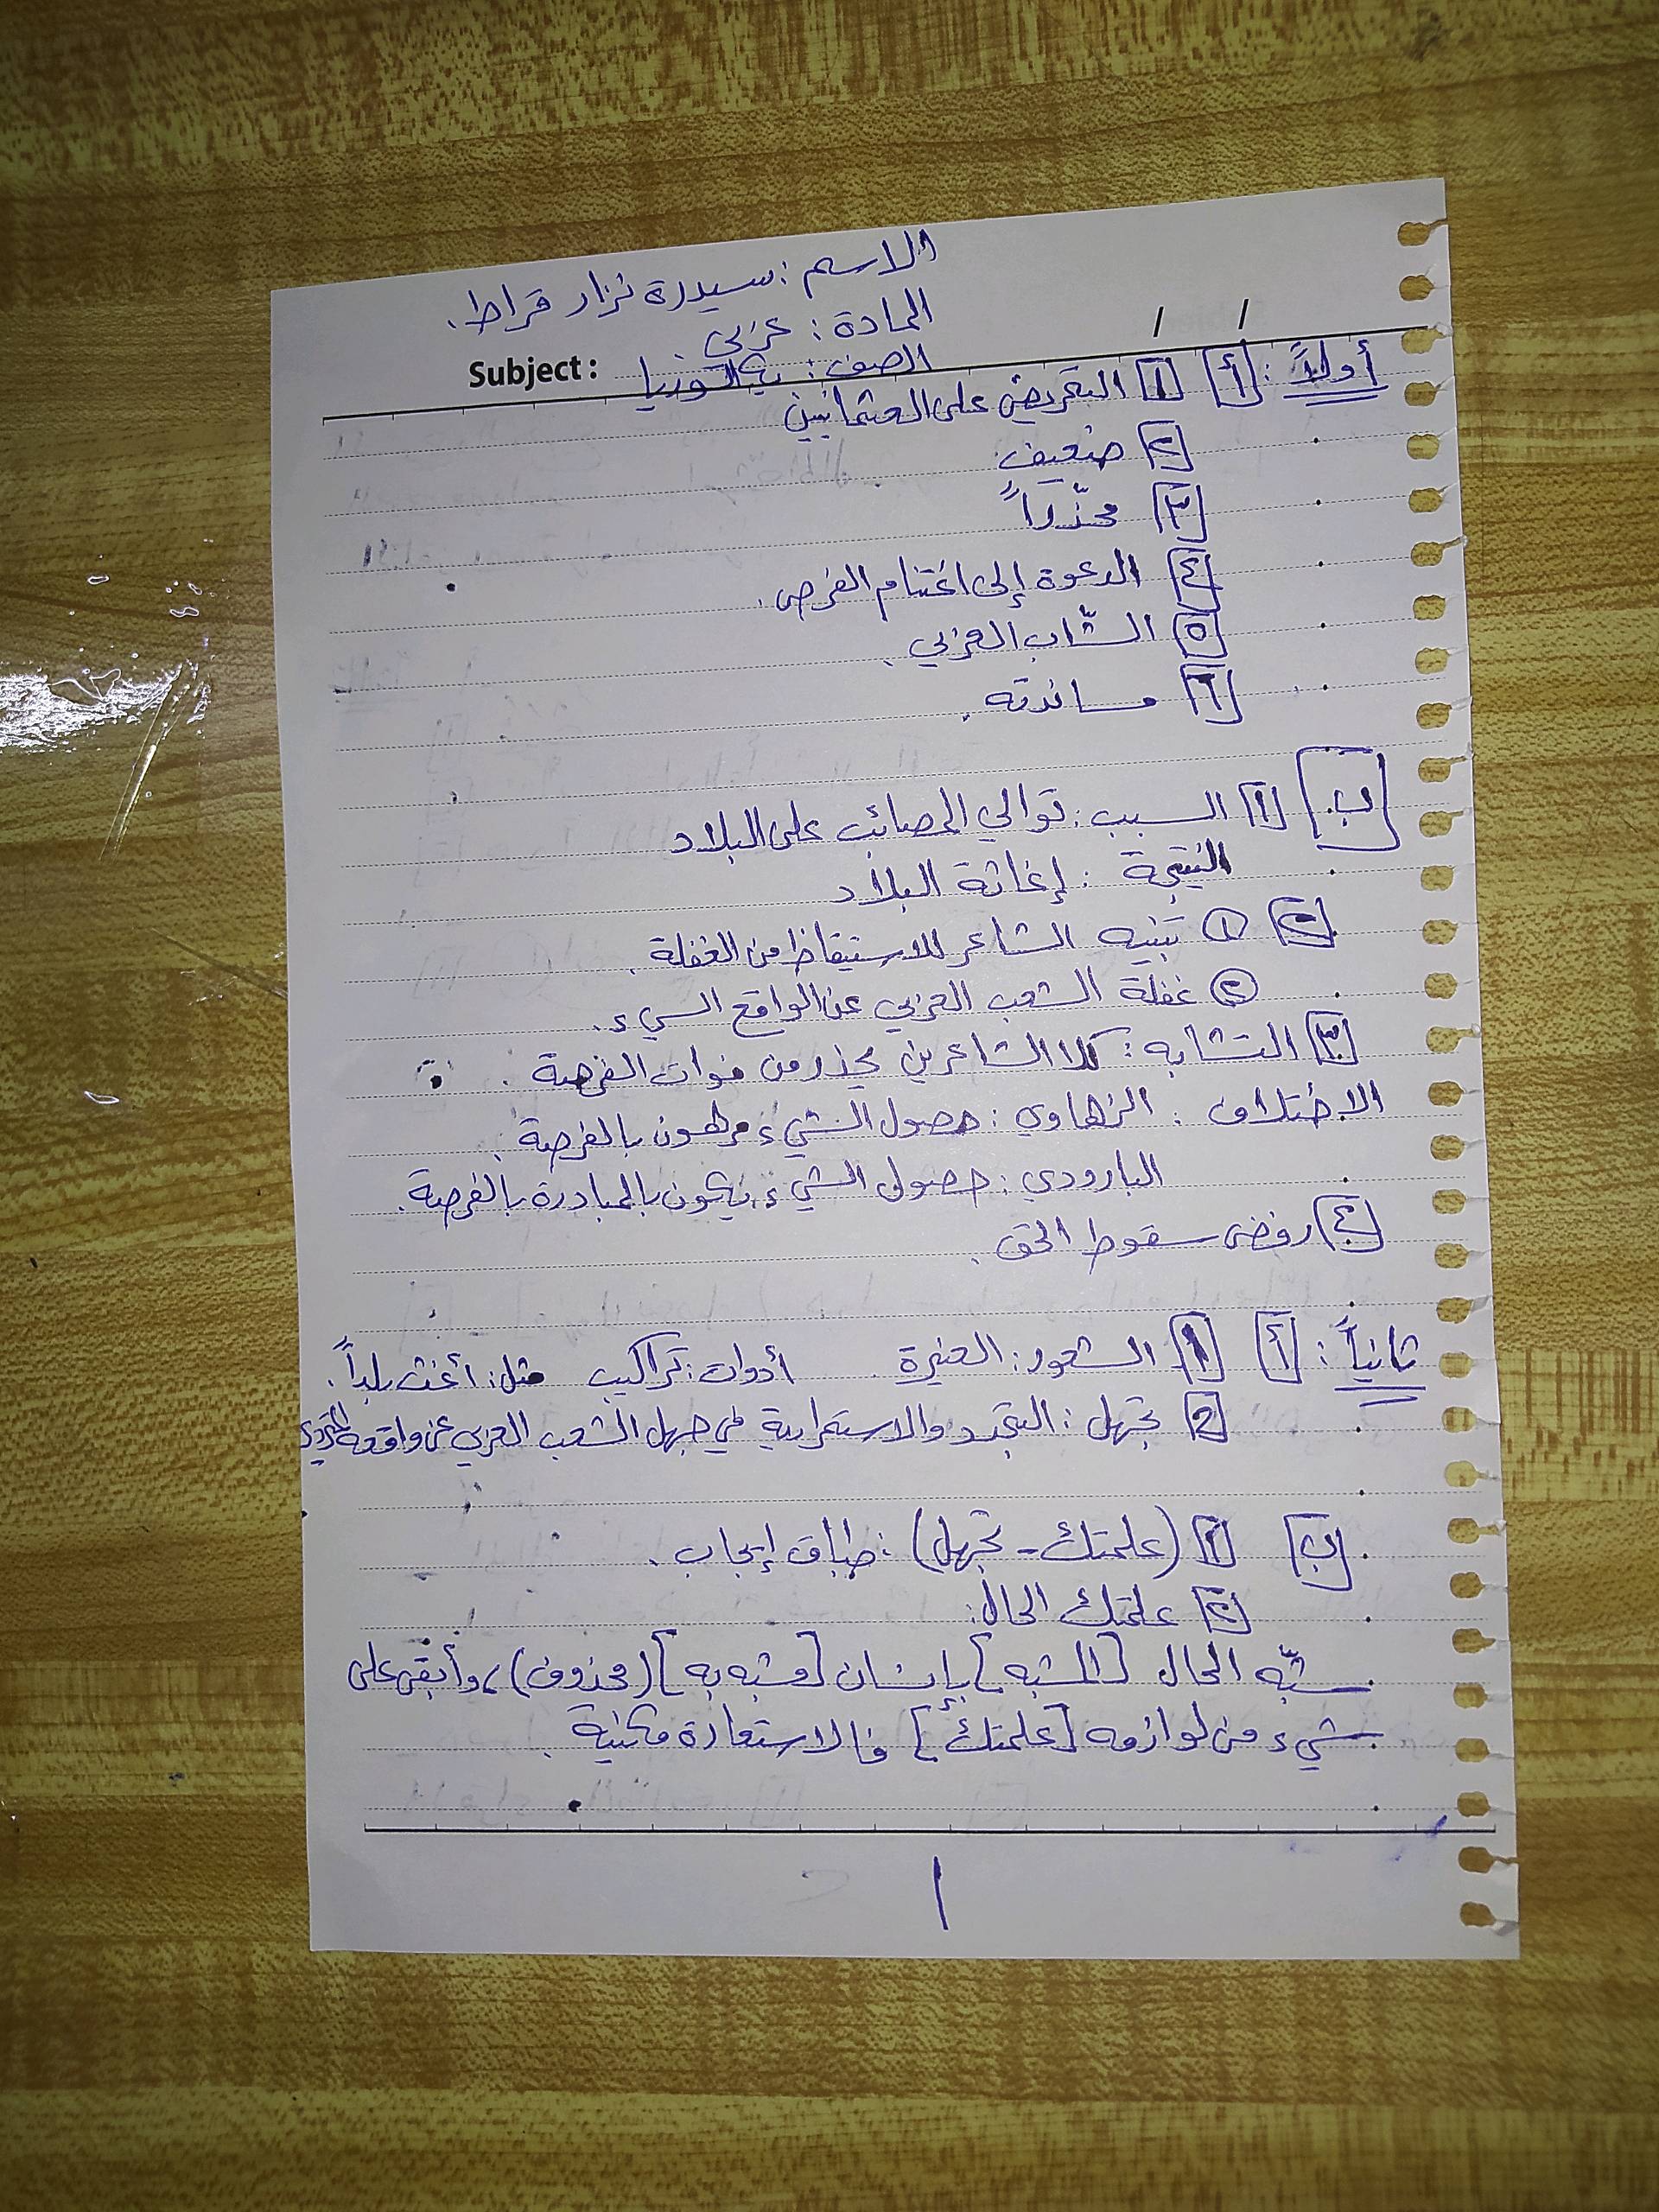 الاسم: سيدرة نزار قراط.
المادة: عربي.
Subject: الصف: بكالوريا
أولاً: أ 1 التحريض على العثمانيين
٢ ضعيف.
٣ محذّراً
٤ الدعوة إلى اغتنام الفرص.
٥ الشّاب العربي.
٦ مساندته.
ب 1 السبب: توالي المصائب على البلاد
النتيجة: إغاثة البلاد
٢ ① تنبيه الشاعر للاستيقاظ من الغفلة.
② غفلة الشعب العربي عن الواقع السيء.
٣ التشابه: كلا الشاعرين يحذر من فوات الفرصة.
الاختلاف: الزهاوي: حصول الشيء مرهون بالفرصة.
البارودي: حصول الشيء يكون بالمبادرة بالفرصة.
٤ رفض سقوط الحق.
ثانياً: أ 1 الشعور: الغيرة. أدوات: تراكيب مثل: أغث بلداً.
2 تجهل: التجدد والاستمرارية في جهل الشعب العربي عن واقعه المتردي
ب 1 (علمتك - تجهل): طباق إيجاب.
٢ علمتك الحال:
شبّه الحال [المشبه] بإنسان [مشبه به] (محذوف)، وأبقى على
شيء من لوازمه [علمتك] فالاستعارة مكنية.
١